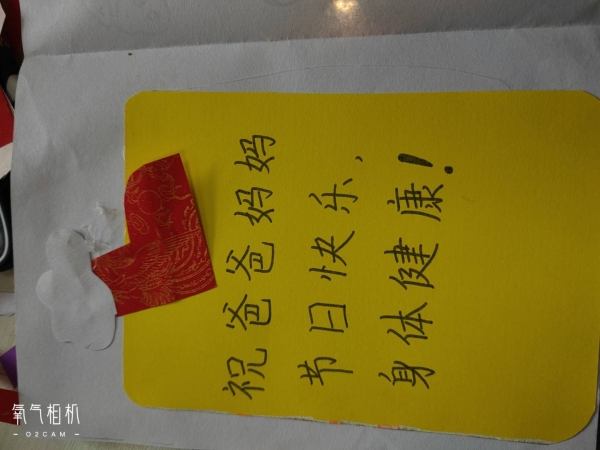 祝爸爸妈妈
节日快乐，
身体健康！
氧气相机
- O2CAM -